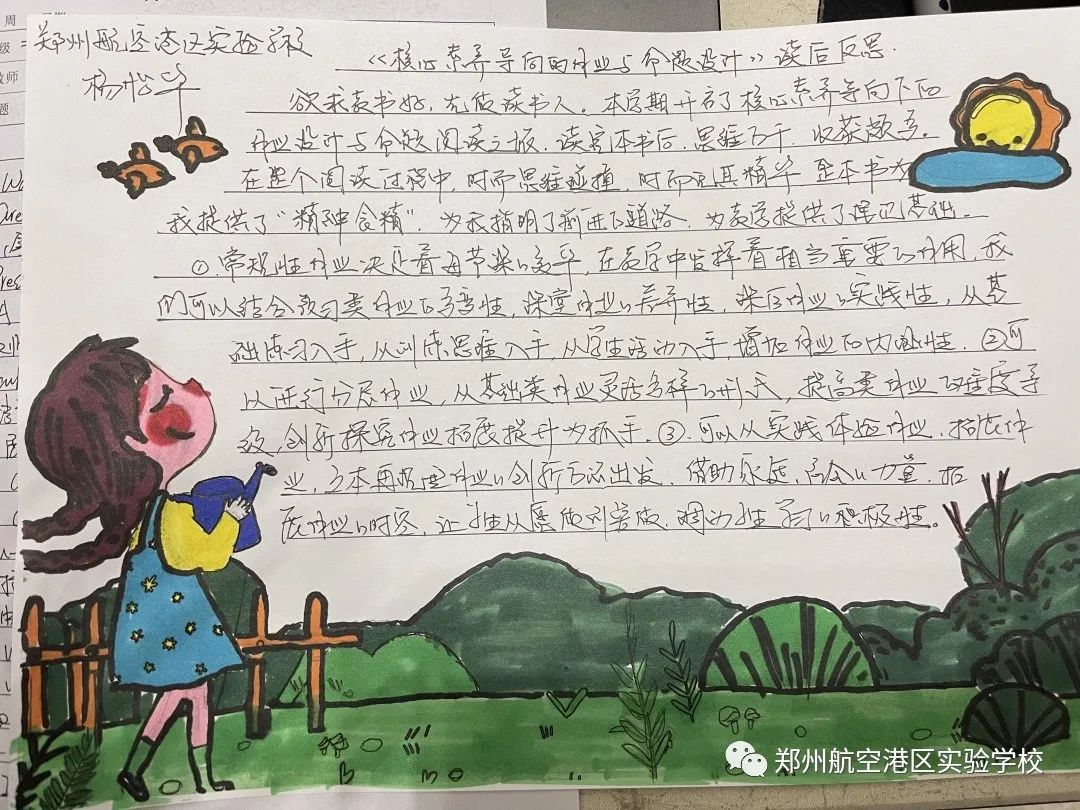 郑州航空港区实验学校
杨怡华
《核心素养导向的作业与命题设计》读后反思.
欲求教书好,先做读书人。本学期开启了核心素养导向下的
作业设计与命题阅读之旅.读完本书后,思维万千,收获颇多。
在整个阅读过程中,时而思维碰撞,时而 其精华 整本书为
我提供了“精神食粮”.为我指明了前进的道路.为教学提供了理论基础.
①常规性作业决定着每节课的高平,在教学中发挥着相当重要的作用,我
们可以结合预习类作业的 性,课堂作业的 性,课后作业的实践性,从基
础练习入手,从训练思维入手,从学生活动入手,增加作业的内 性.②可
以进行分层作业,从基础类作业灵活多样的形式,提高类作业的难度等
级,创新探究作业拓展提升为抓手.③.可以从实践体验作业.拓展作
业, 本 作业的创新 出发.借助家庭,社会的力量.拓
展作业的时空,让学生从愿做到 做,调动学生学习的积极性。
郑州航空港区实验学校